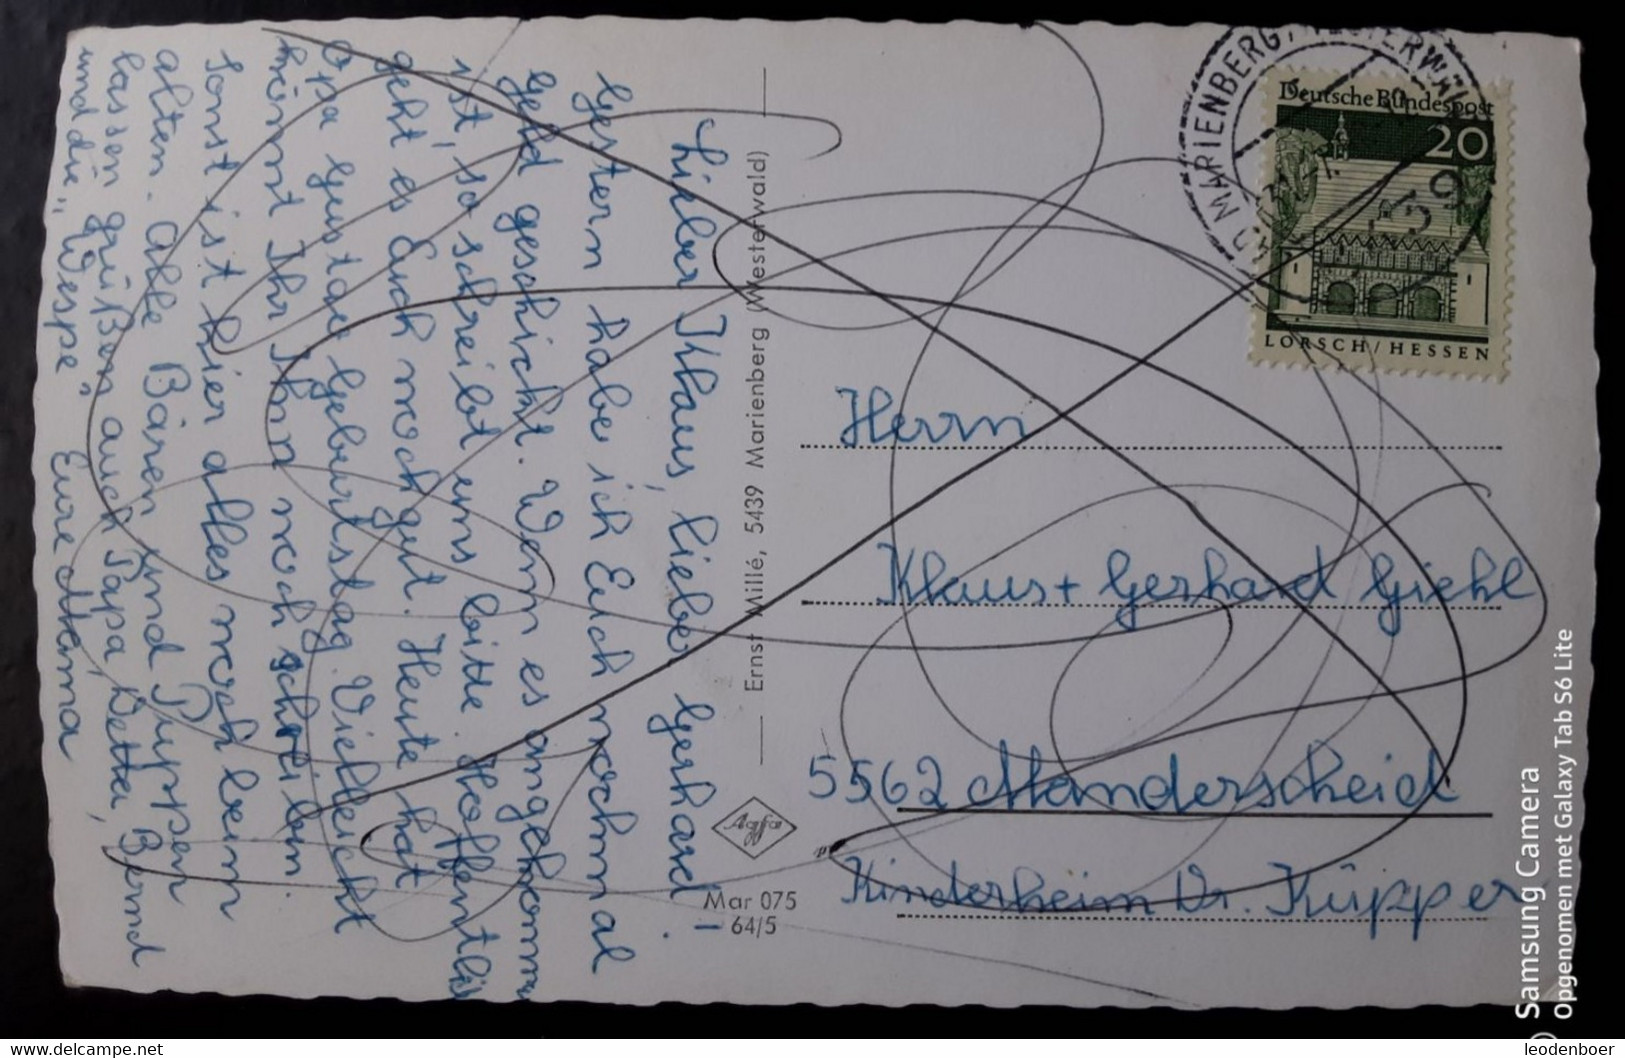 Lieber Klaus, lieber Gerhard -
Gestern habe ich Euch nochmal
Geld geschickt. Wenn es angekommen
ist, so schreibt uns bitte. Hoffentlich
geht es Euch noch gut. Heute hat
Opa Gustav Geburtstag. Vielleicht
könnt Ihr ihm noch schreiben.
Sonst ist hier alles noch beim
alten. Alle Bären und Puppen
lassen grüßen auch Papa, Detta, Bernd
und die "Wespe". Eure Mama
Ernst Millé, 5439 Marienberg (Westerwald)
Agfa
Mar 075
64/5
MARIENBERG/WESTERWALD
539
Deutsche Bundespost
20
LORSCH/HESSEN
Herrn
Klaus + Gerhard Giehl
5562 Manderscheid
Kinderheim Dr. Küpper
Samsung Camera
Opgenomen met Galaxy Tab S6 Lite
delcampe.net
leodenboer